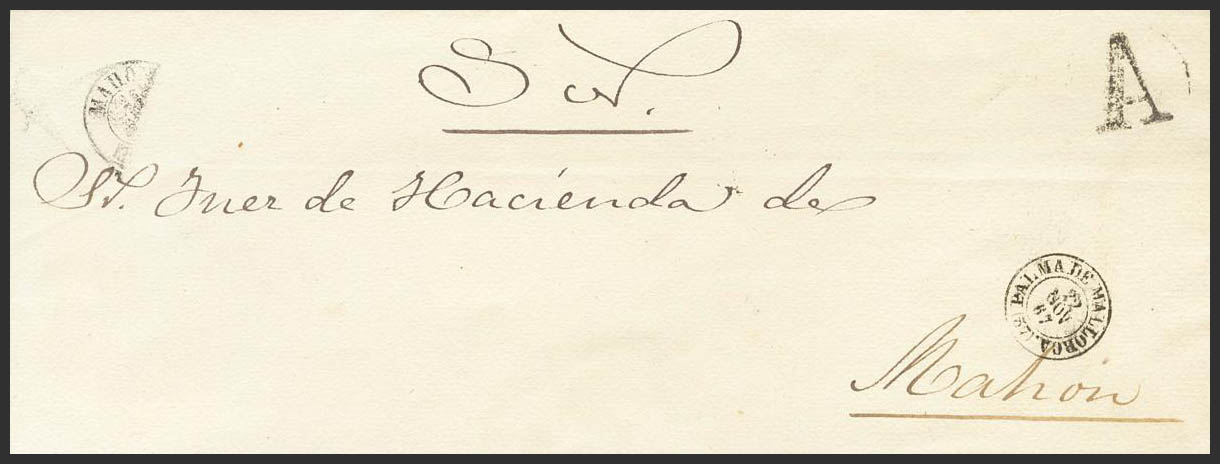 S. N.
A
MAHO
Sr. Juez de Hacienda de
PALMA DE MALLORCA. (29)
NOV
67
Mahón